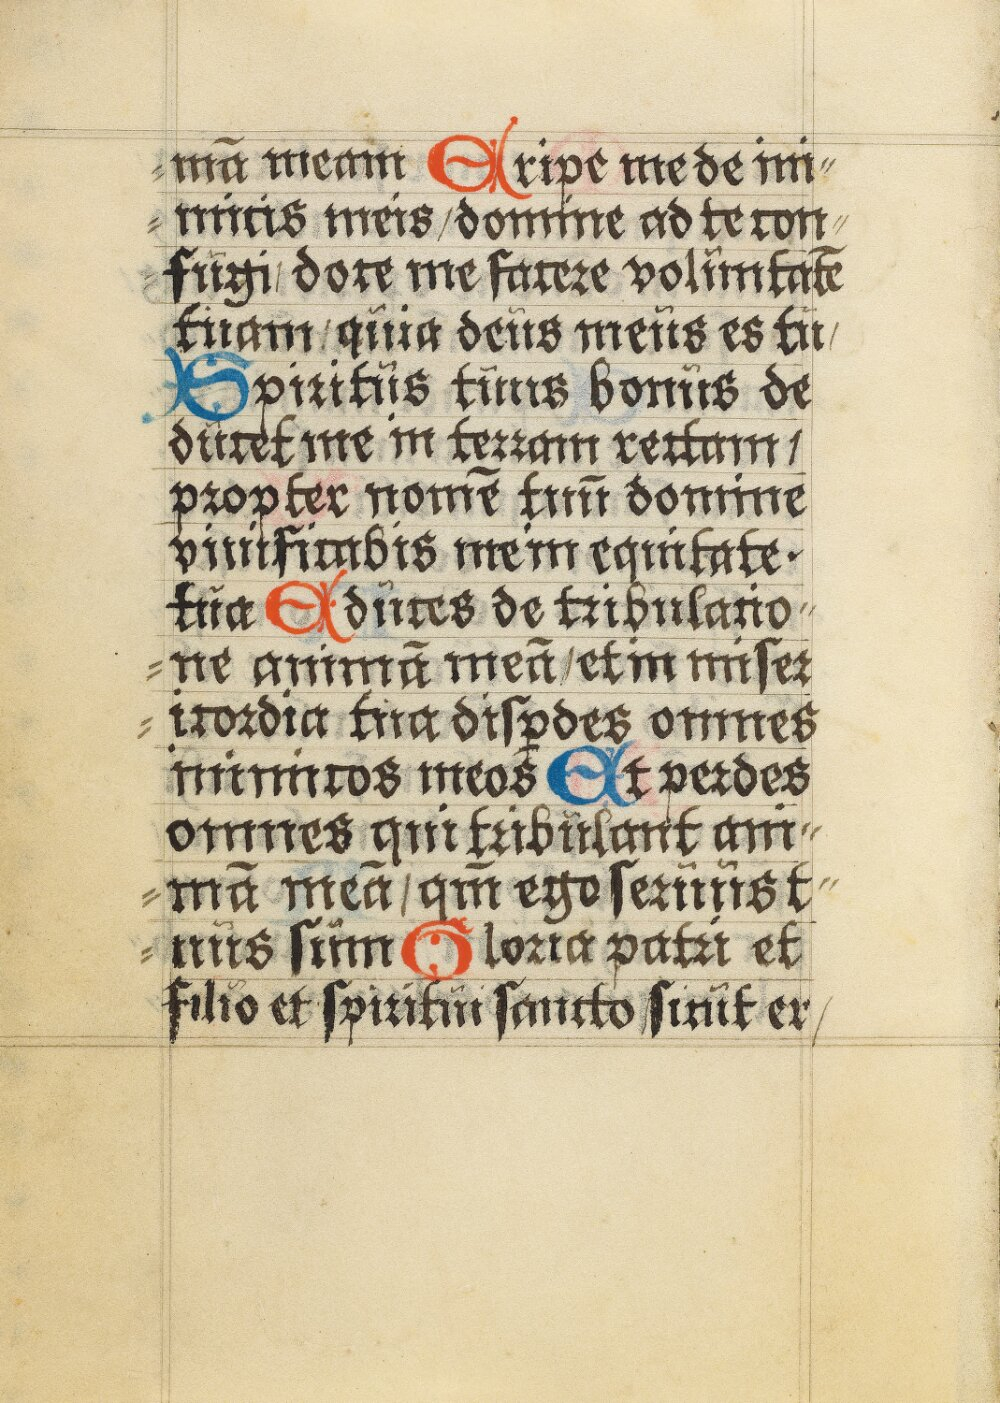 mā meam Eripe me de ini⸗
micis meis/domine ad te con⸗
fugi/ doce me facere volūntatē
tuam/quia deus meus es tu/
Spiritus tuus bonus de
ducet me in terram rectam/
propter nomē tuū domine
viuificabis me in equitate·
tua Educes de tribulatio⸗
ne animā meā/et in miser
icordia tua disꝑdes omnes
inimicos meos Et perdes
omnes qui tribulant ani⸗
mā meā/qm̄ ego seruus t⸗
uus sum Gloria patri et
filio et spiritui sancto/sicut er/